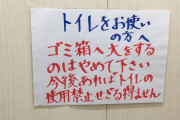 トイレをお使い
の方へ
ゴミ箱へ大をする
のはやめて下さい
今後あればトイレの
使用禁止せざる得ません